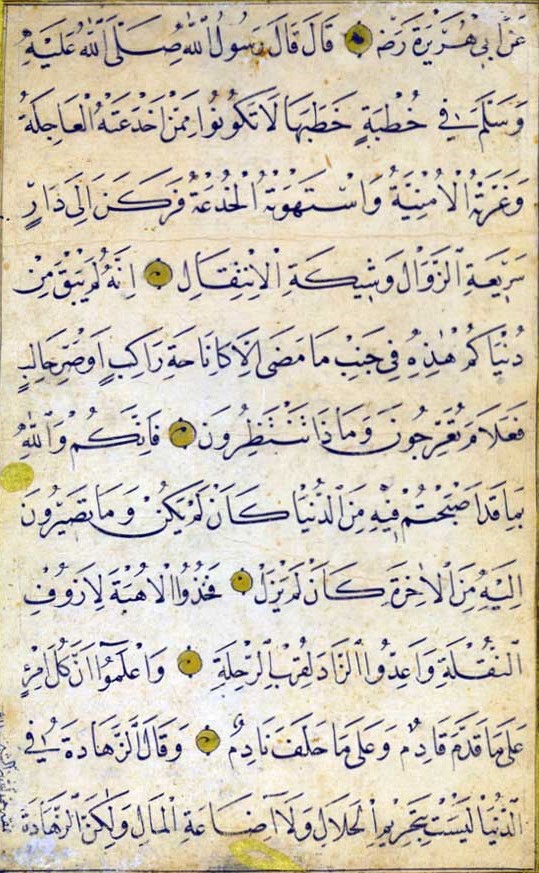 عَنْ اَبِى هُرَيْرَةَ رَضِ قَالَ قَالَ رَسُولُ اللّٰهِ صَلَّى اللّٰهُ عَلَيْهِ
وَسَلَّمَ فِي خُطْبَةٍ خَطَبَهَا لَا تَكُونُوا مِمَّنْ اَخْدَعَتْهُ الْعَاجِلَةُ
وَغَرَّتْهُ الْاُمْنِيَّةُ وَاسْتَهْوَتْهُ الْخُدْعَةُ فَرَكَنَ اِلَى دَارٍ
سَرِيْعَةِ الزَّوَالِ وَشِيكَةِ الْاِنْتِقَالِ اِنَّهُ لَمْ يَبْقَ مِنْ
دُنْيَاكُمْ هٰذِهِ فِي جَنْبِ مَا مَضَى اِلَّا كَاِنَاخَةِ رَاكِبٍ اَوْ صَرِّ حَالِبٍ
فَعَلَامَ تُعَرِّجُونَ وَمَاذَا تَنْتَظِرُونَ فَاِنَّكُمْ وَاللّٰهِ
بِمَا قَدْ اَصْبَحْتُمْ فِيْهِ مِنَ الدُّنْيَا كَاَنْ لَمْ يَكُنْ وَمَا تَصِيْرُونَ
اِلَيْهِ مِنَ الْاٰخِرَةِ كَاَنْ لَمْ يَزَلْ فَخُذُوا الْاُهْبَةَ لِاَزُوْفِ
النُّقْلَةِ وَاَعِدُّوا الزَّادَ لِقُرْبِ الرِّحْلَةِ وَاعْلَمُوا اَنَّ كُلَّ امْرِئٍ
عَلَى مَا قَدَّمَ قَادِمٌ وَعَلَى مَا خَلَفَ نَادِمٌ وَقَالَ الزَّهَادَةُ فِي
الدُّنْيَا لَيْسَتْ بِتَحْرِيْمِ الْحَلَالِ وَلَا اِضَاعَةِ الْمَالِ وَلٰكِنَّ الزَّهَادَةَ